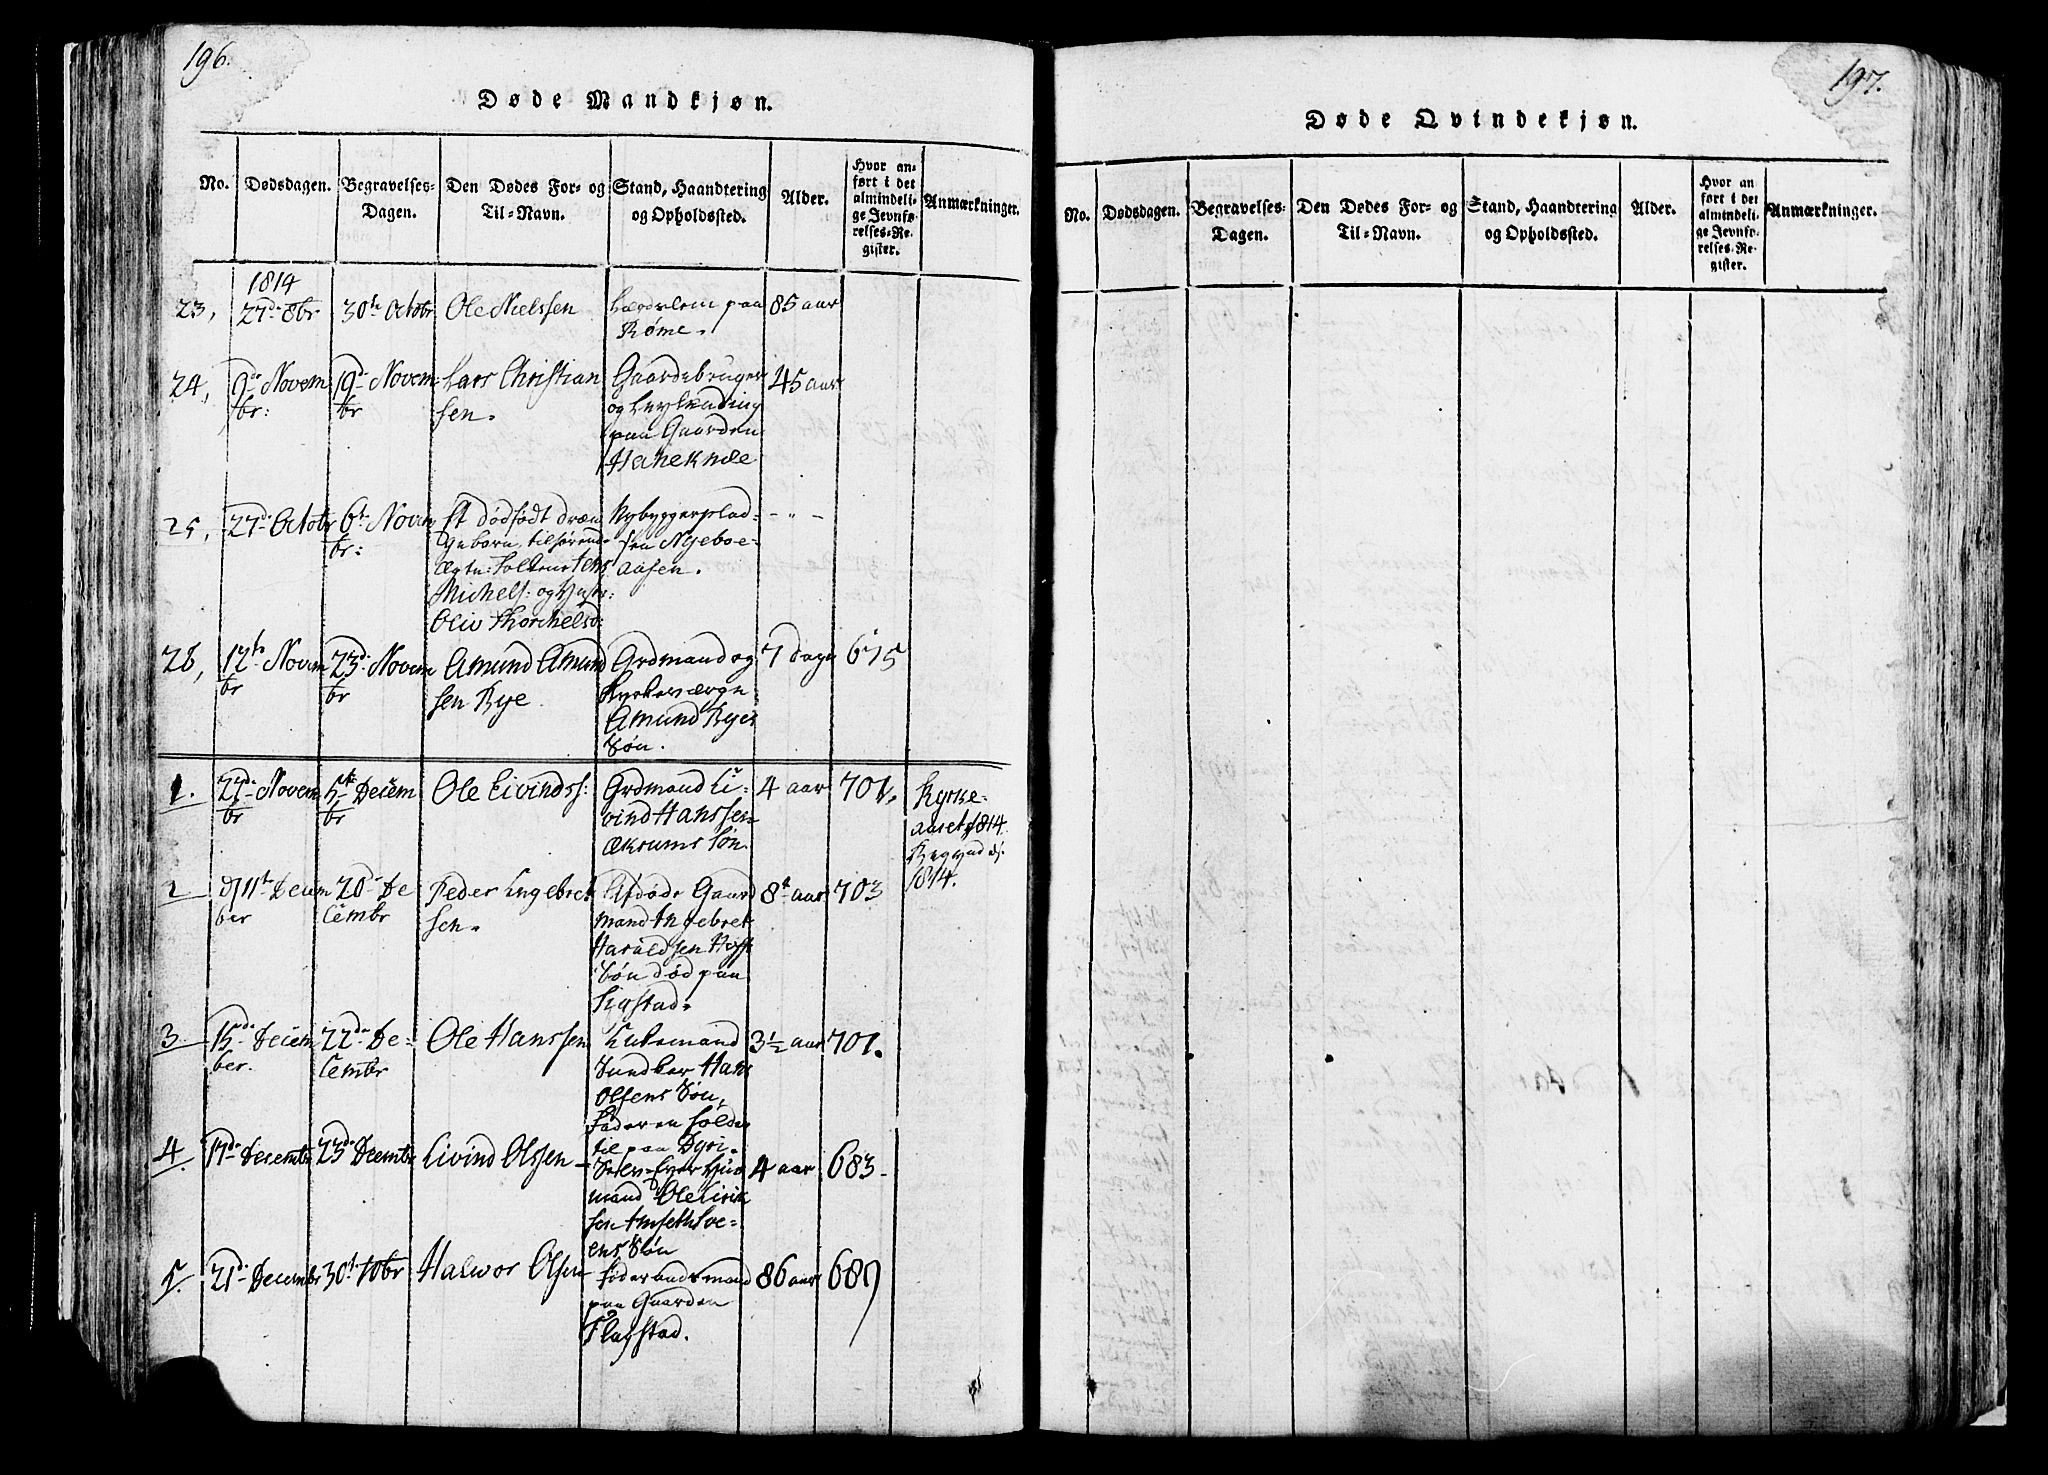 196.
Døde Mandkjøn.
No.
Dødsdagen.
Begravelses-
Dagen.
Den Dødes For- og
Til-Navn.
Stand, Haandtering
og Opholdssted.
Alder.
Hvor an-
ført i det
almindeli-
ge Jevnfø-
relses-Re-
gister.
Anmærkninger.
1814
23,
27de 8br
30te Octobr
Ole Nielssen
paa
Røme.
85 aar
24,
9de Novem
br:
19de Novem
br
Lars Christian
sen.
Gaardebruger
og
paa Gaarden
Haneknæ
45 aar
25,
27de Octobr
6te Novem
br:
Et dødfødt dræn
gebarn, tilhørend
Michels: og
Oliv Thorchelsd:
Nybyggerplad-
sen Nyeboe-
aasen.
- " -
26,
12te Novem
br
23de Novem
br
Amund Amund
sen Rye
Grdmand og
Kirkeværge
Amund Ryes
Søn.
7 dage
675
1.
27de Novem
br
5te Decem
br
Ole Eivinds:
Grdmand Ei-
vind Hanssen
Økrums Søn
4 aar
701.
Kyrke-
aaret 1814
1814.
2
d 11te Decem
ber
20de De
cembr
Peder Engebret
sen.
Afdøde Gaard
mand Ingebret
Haraldsen
Søn død paa
Ligstad.
8t aar
703
3.
15de Decem
ber.
22de De-
cembr
Ole Hanssen
Hans
Olsens Søn,
Fader en Solda
til paa
3½ aar
701.
4.
17de Decembr
23de Decembr
Eivind Olssen
mand Ole Eirik
sen
ens Søn
4 aar
683
5.
21de Decembr
30te 10br
Halvor Olsen
Føderaadsmand
paa Gaarden
Flagstad.
86 aar
689
197.
Døde Qvindekjøn.
No.
Dødsdagen.
Begravelses-
Dagen.
Den Dødes For- og
Til-Navn.
Stand, Haandtering
og Opholdssted.
Alder.
Hvor an
ført i det
almindeli-
ge Jevnfø-
relses-Re-
gister.
Anmærkninger.